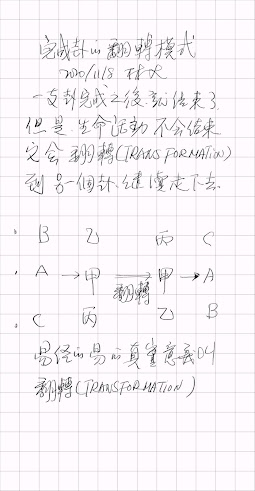 完成卦的翻轉模式
2020/11/8 林火
一支卦完成之後就結束了
但是生命活動不會結束
它會翻轉(TRANSFORMATION)
到另一個卦繼續走下去.
B 乙 丙 C
A → 甲 → 甲 → A
翻轉
C 丙 乙 B
易經的易的真實意義
翻轉(TRANSFORMATION)